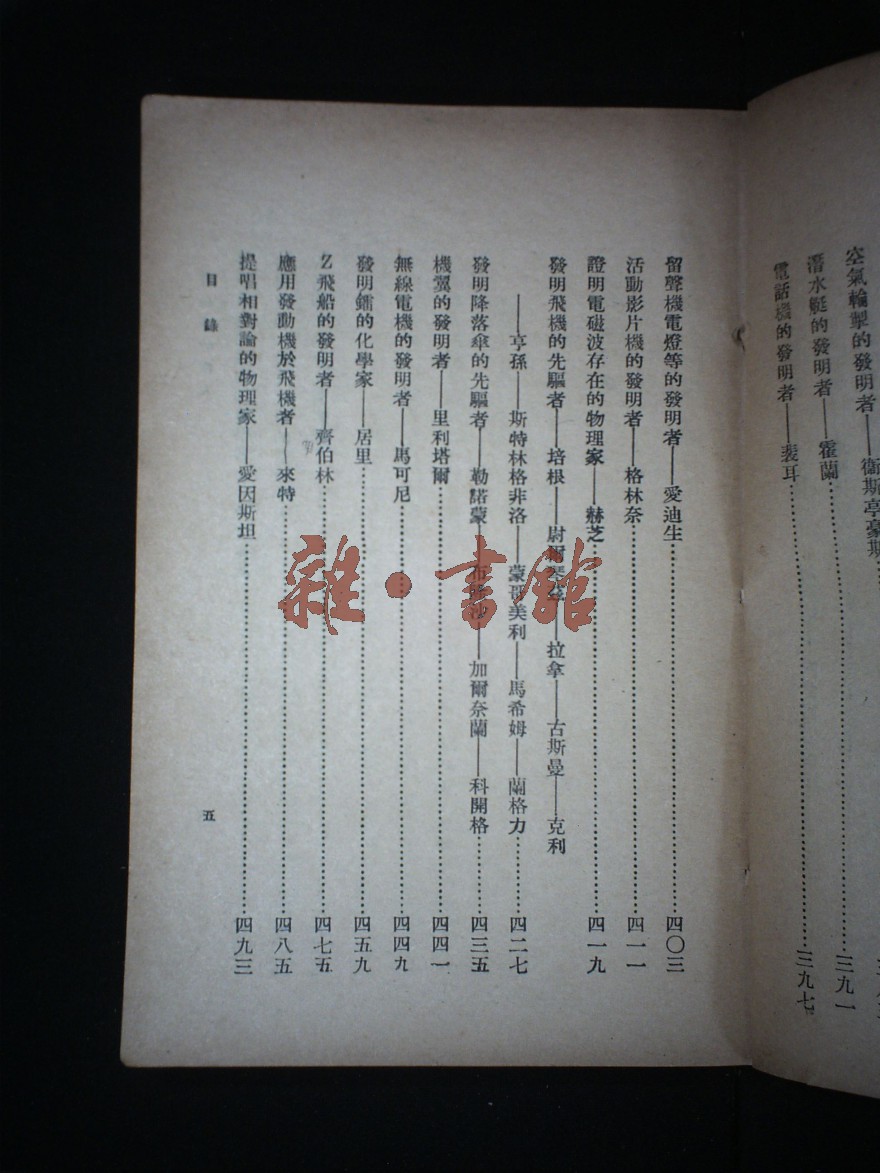 空氣輪掣的發明者——衞斯亭豪斯
潛水艇的發明者——霍蘭……三九一
電話機的發明者——裴耳……三九七
留聲機電燈等的發明者——愛迪生……四〇三
活動影片機的發明者——格林奈……四一一
證明電磁波存在的物理家——赫芝……四一九
發明飛機的先驅者——培根——尉爾——拉拿——古斯曼——克利
——亨孫——斯特林格非洛——蒙哥美利——馬希姆——蘭格力……四二七
發明降落傘的先驅者——勒諾蒙——加爾奈蘭——科開格……四三五
機翼的發明者——里利塔爾……四四一
無線電機的發明者——馬可尼……四四九
發明鐳的化學家——居里……四五九
Z飛船的發明者——齊伯林……四七五
應用發動機於飛機者——來特……四八五
提唱相對論的物理家——愛因斯坦……四九三
目錄
五
雜·書館